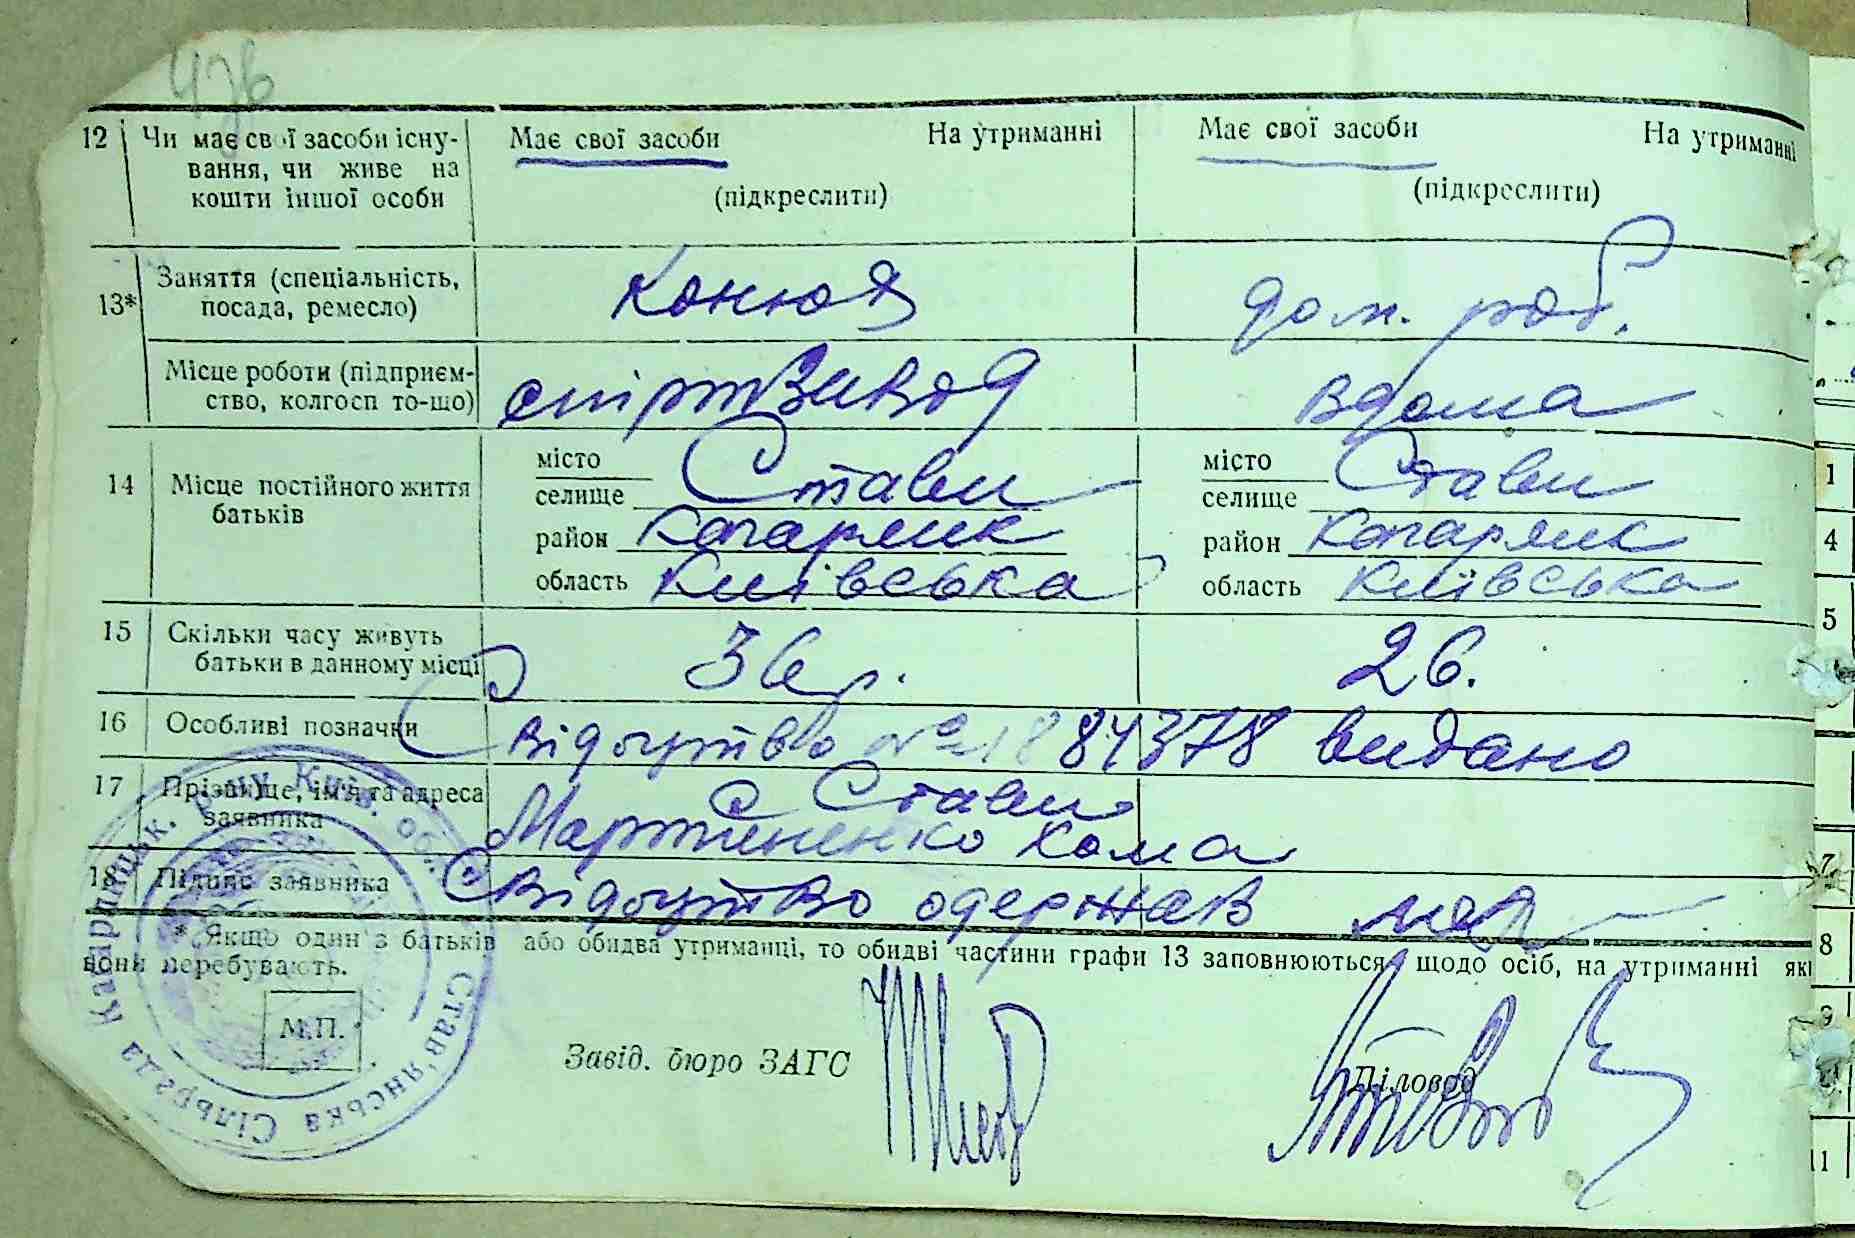 12 Чи має свої засоби існу- Має свої засоби На утриманні Має свої засоби На утриманні
вання, чи живе на (підкреслити) (підкреслити)
кошти іншої особи
13* Заняття (спеціальність, Конюх дом. роб.
посада, ремесло)
Місце роботи (підприєм- спіртзавод вдома
ство, колгосп то-що)
14 Місце постійного життя місто Стави місто Стави 1
батьків селище селище
район Кагарлик район Кагарлик 4
область Київська область Київська
15 Скільки часу живуть 36 р. 26. 5
батьки в данному місці
16 Особливі позначки Свідоцтво № 1884378 видано
17 Прізвище, ім'я та адреса с Стави
заявника Мартиненко Хома 7
18 Підпис заявника Свідоцтво одержав мар
* Якщо один з батьків або обидва утриманці, то обидві частини графи 13 заповнюються щодо осіб, на утриманні які 8
вони перебувають.
9
М.П.
Завід. бюро ЗАГС Діловод
11
Став'янська Сільрада Кагарлицьк. р-ну Київ. обл.